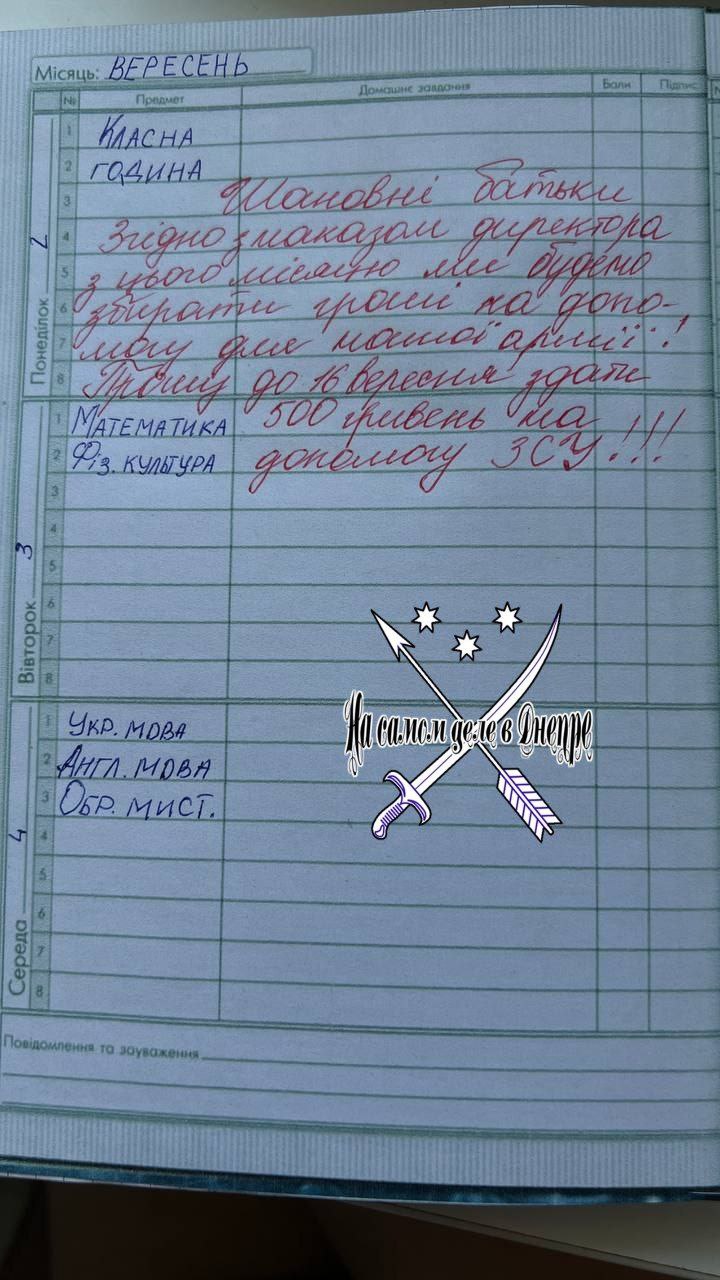 Місяць: ВЕРЕСЕНЬ
№ Предмет Домашнє завдання Бали Підпис
Понеділок 2
1 Класна
2 година
3 Шановні батьки
4 Згідно з наказом директора
5 з цього місяцю ми будемо
6 збирати гроші на допо-
7 могу для нашої армії!
8 Прошу до 16 вересня здати
Вівторок 3
1 Математика 500 гривень на
2 Фіз. культура допомогу ЗСУ!!!
3
4
5
6
7
8
На самом деле в Днепре
Середа 4
1 Укр. мова
2 Англ. мова
3 Обр. мист.
4
5
6
7
8
Повідомлення та зауваження